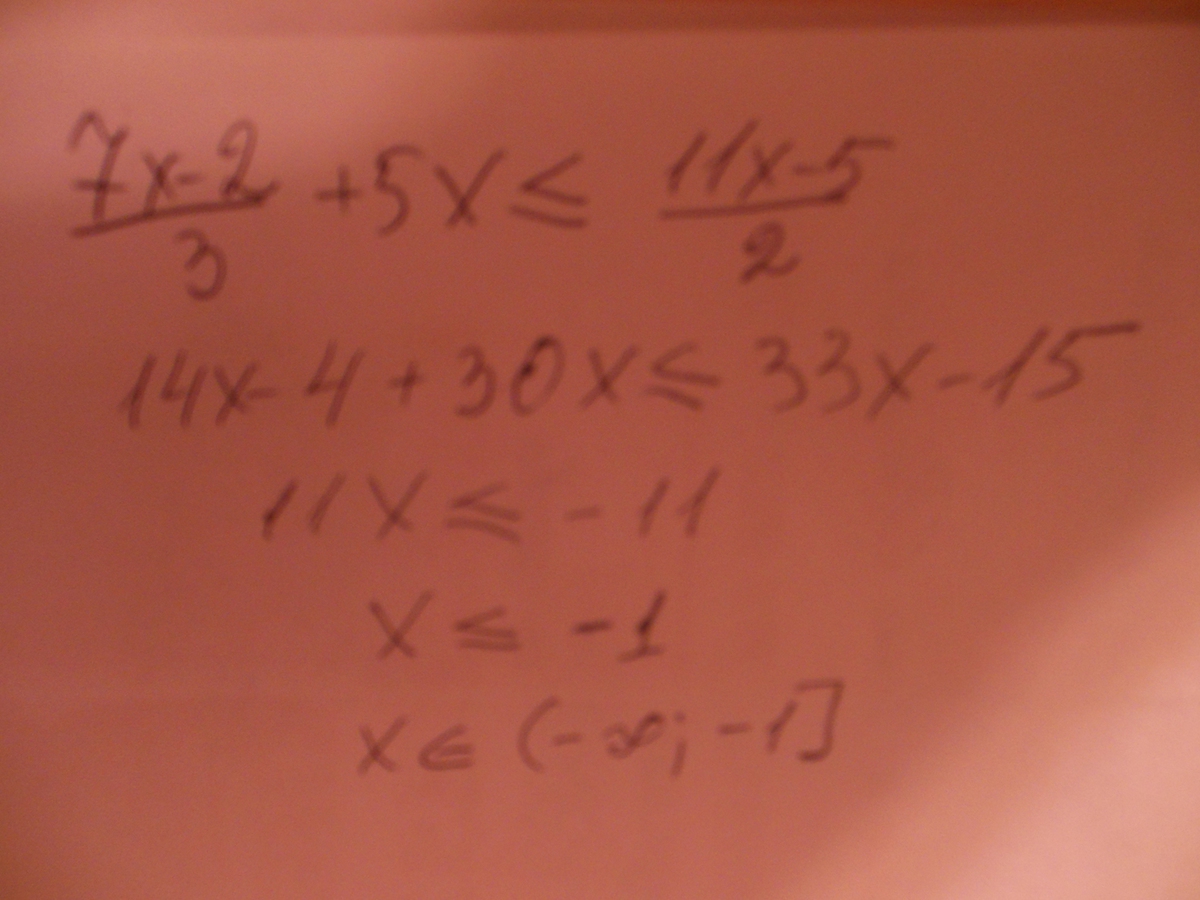 (7x-2)/3 + 5x ≤ (11x-5)/2
14x - 4 + 30x ≤ 33x - 15
11x ≤ -11
x ≤ -1
x ∈ (-∞; -1]